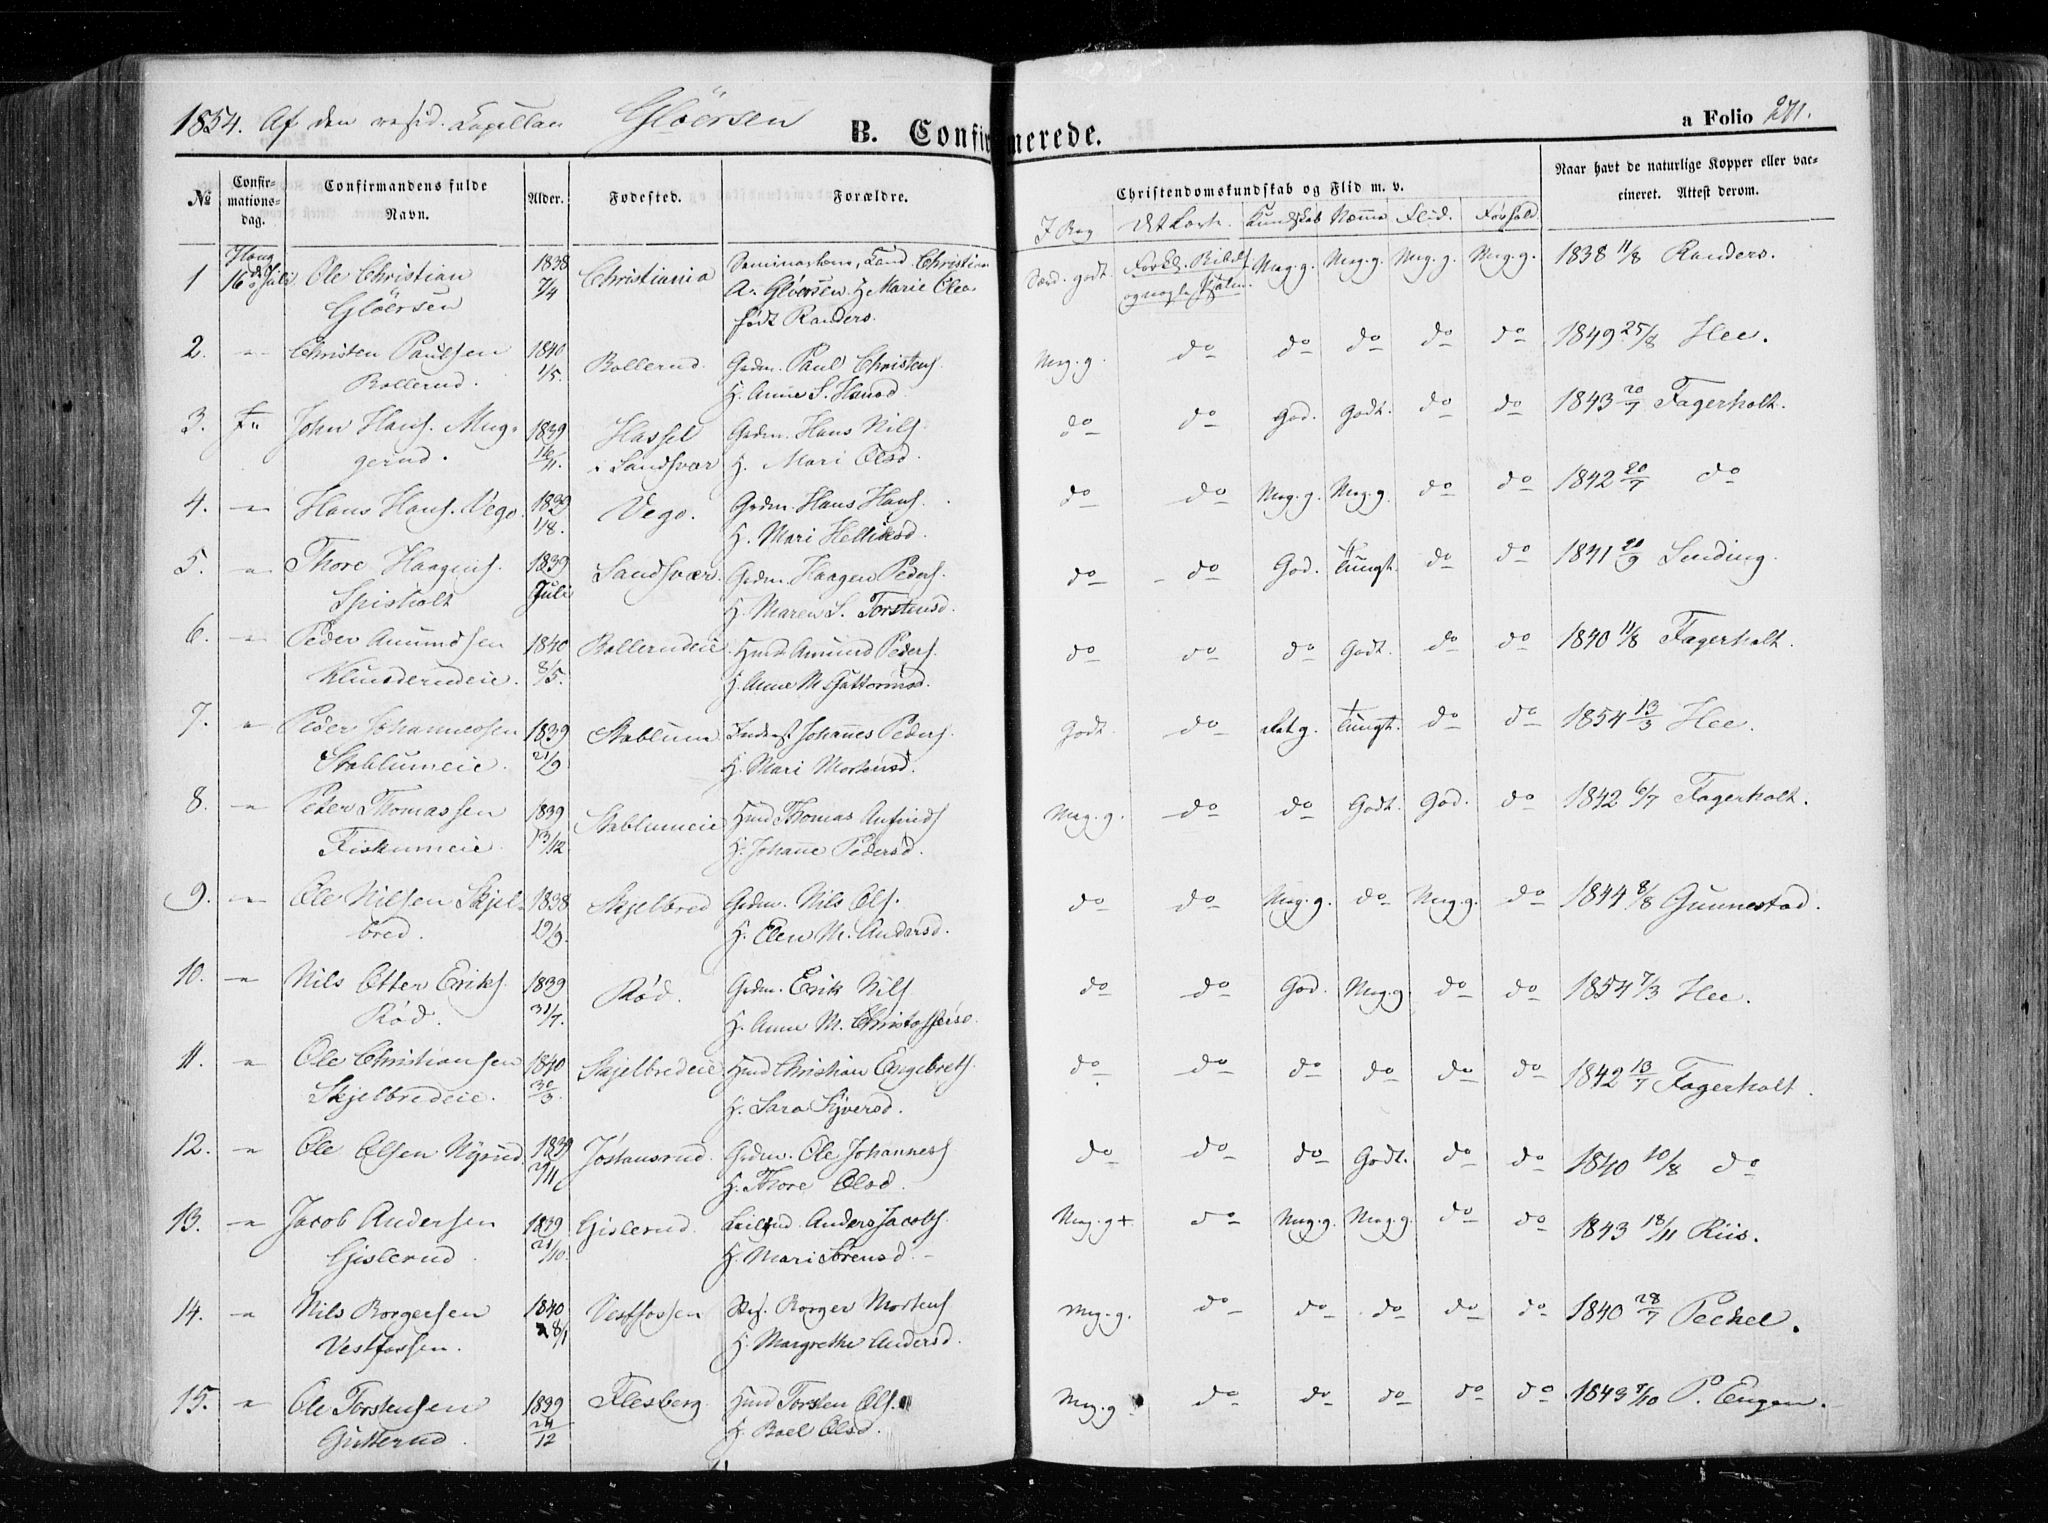 1854. Af den resid. Capellan Gløersen
B. Confirmerede.
a Folio 271.
No
Confirmationsdag.
Confirmandens fulde Navn.
Alder.
Fødested.
Forældre.
Christendomskundskab og Flid m. v.
I Bog
Kundskab
Nemme
Flid.
Forhold.
Naar havt de naturlige Kopper eller vaccineret. Attest derom.
1 Ole Christian Gløersen 1838 7/4 Christiania Cand. Christian A. Gløersen H. Marie Elea født Randers. godt Meg. g. Meg. g. Meg. g. Meg. g. 1838 11/8 Randers.
2. " Christen Paulsen Bollerud. 1840 1/5. Bollerud. Grdm. Paul Christens. H. Anne S. Meg. g. do do do do do 1849 25/8 Hee.
3. John Hans. Muggerud. 1839 16/11. Hassel i Sandsvær Grdm. Hans Nils. H. Mari Olsd. do do God. Godt. do do 1843 20/7 Fagerholt.
4. " Hans Hans. Vego. 1839 1/8. Vego. Grdm. Hans Hans. H. Mari Helliksd. do do Meg. g. Meg. g. do do 1842 20/7 do
5. " Thore Haagens. Spisholt 1839 Juli Sandsvær. Grdm. Haagen Peders. H. Maren S. Torstensd. do do God. Tungt. do do 1841 21/9 Sending.
6. " Peder Amundsen Klunderudeie. 1840 8/5. Bollerudeie. Hmd. Amund Peders. H. Anne M. Guttormsd. do do do Godt. do do 1840 11/8 Fagerholt.
7. " Peder Johannessen Stablumeie. 1839 21/9. Stablum Inderst Johannes Peders. H. Mari Mortensd. Godt. do Tungt. do do 1854 13/3 Hee.
8. " Peter Thomassen Fiskumeie. 1839 13/12. Stablumeie Hmd Thomas Anfinds. H. Johanne Pedersd. Meg. g. do do Godt. God. do 1842 6/7 Fagerholt.
9. " Ole Nilsen Skjelbred. 1838 Skjelbred Grdm. Nils Ols. H. Elen M. Andersd. do do Meg. g. do Meg. g. do 1844 8/8 Gunnestad.
10. " Nils Otter Eriks. Rød. 1839 31/7. Rød. Grdm. Erik Nils. H. Anne M. Christoffersd. do do God. Meg. g. do do 1854 7/3 Hee.
11. " Ole Christiansen Skjelbredeie. 1840 30/3. Skjelbredeie Hmd Christian Engebrets. H. Sara Syversd. do do do do do do 1842 13/7 Fagerholt.
12. " Ole Olsen Nyrud. 1839 Jøstansrud. Grdm. Ole Johannes. H. Thore Olsd. do do do Godt. do do 1840 10/8 do
13. " Jacob Andersen Gislerud. 1839 21/10. Gislerud. Leilend. Anders Jacobs. H. Mari Sørensd. Meg. g + do Meg. g. Meg. g. do do 1843 18/11 Riis.
14. " Nils Borgersen Vestfossen. 1840 8/1 Vestfossen Borger Mortens. H. Margrethe Andersd. Meg. g. do do do do do 1840 28/7 Pechel.
15. " Ole Torstensen Gutterud. 1839 24/12 Flesberg. Hmd Torsten Ols. H. Boel Olsd. Meg. g do do do do do 1843 8/10 P. Engen.